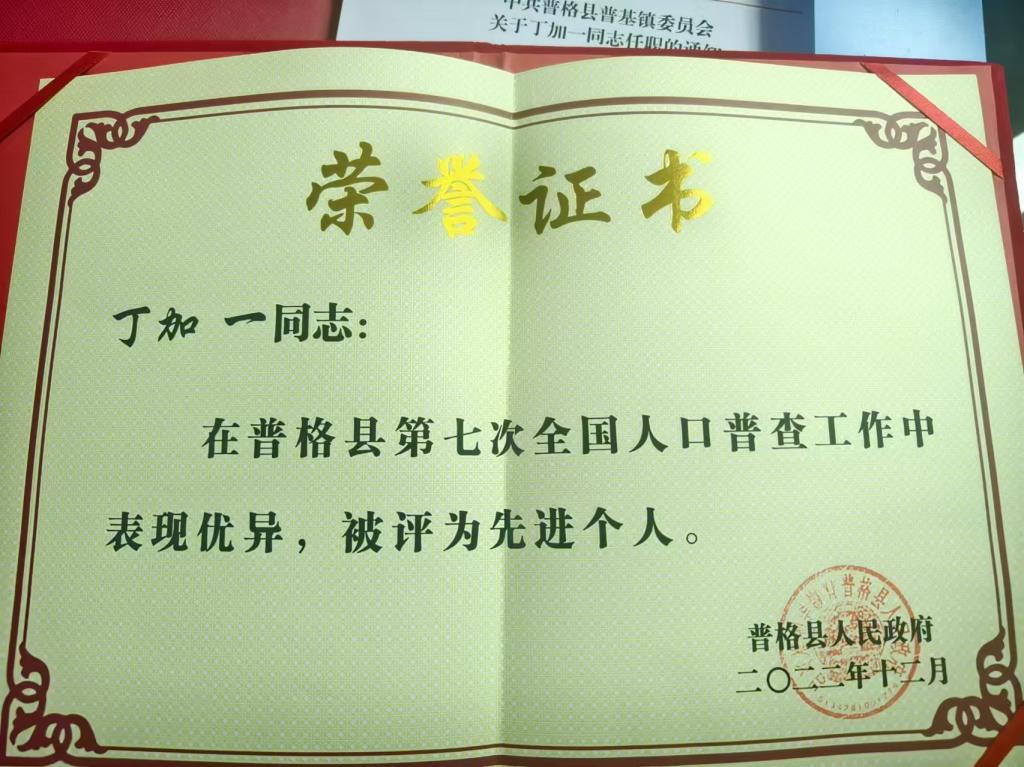 中共普格县普基镇委员会
关于丁加一同志任职的通知
荣誉证书
丁加 一同志：
在普格县第七次全国人口普查工作中
表现优异，被评为先进个人。
普格县人民政府
二〇二二年十二月